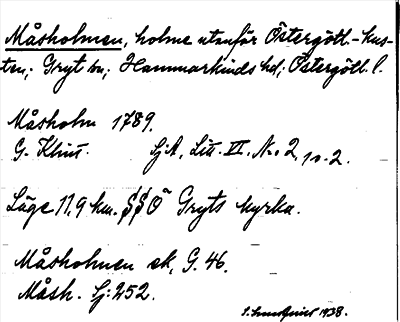 Måsholmen, holme utanför Östergötl.-kus-
ten; Gryt sn; Hammarkinds hd; Östergötl. l.
Måsholm 1789.
G. Klint. SjA, Litt. VI. No. 2, 10-2.
Läge 11,9 km. SSO Gryts kyrka.
Måsholmen ek, G. 46.
Måsh. Sj: 252.
1938.